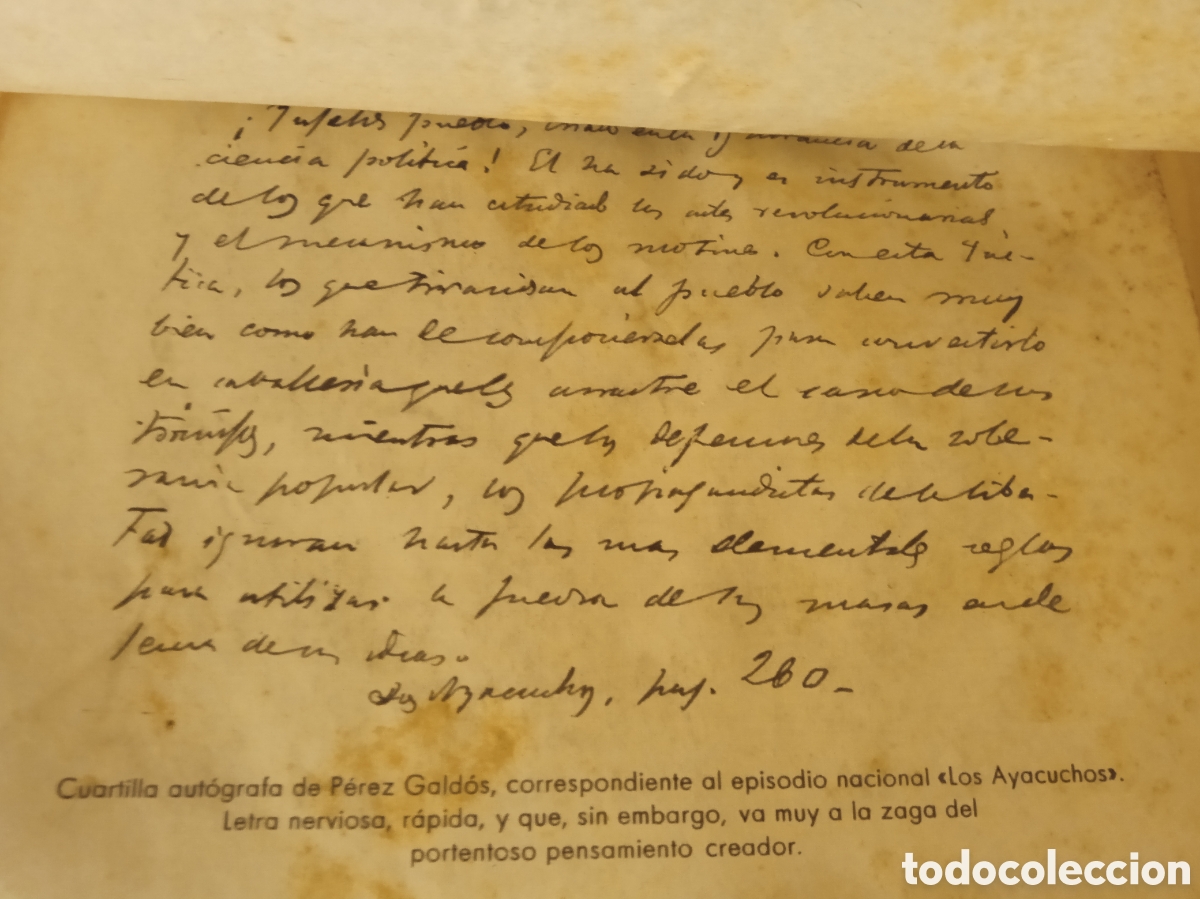 ¡Infeliz pueblo, criado en la ignorancia de la
ciencia política! El ha sido y es instrumento
de los que han estudiado las artes revolucionarias
y el mecanismo de los motines. Con esta Tác-
tica, los que tiranizan al pueblo saben muy
bien como han de componérselas para convertirlo
en caballería que les arrastre el carro de sus
triúnfos, mientras que los defensores de la sobe-
ranía popular, los propagandistas de la liber-
Tad ignoran hasta las mas elementales reglas
para utilizar la fuerza de las masas en de
fensa de sus ideas.
Los Ayacuchos, pag. 260-
Cuartilla autógrafa de Pérez Galdós, correspondiente al episodio nacional «Los Ayacuchos».
Letra nerviosa, rápida, y que, sin embargo, va muy a la zaga del
portentoso pensamiento creador.
todocoleccion